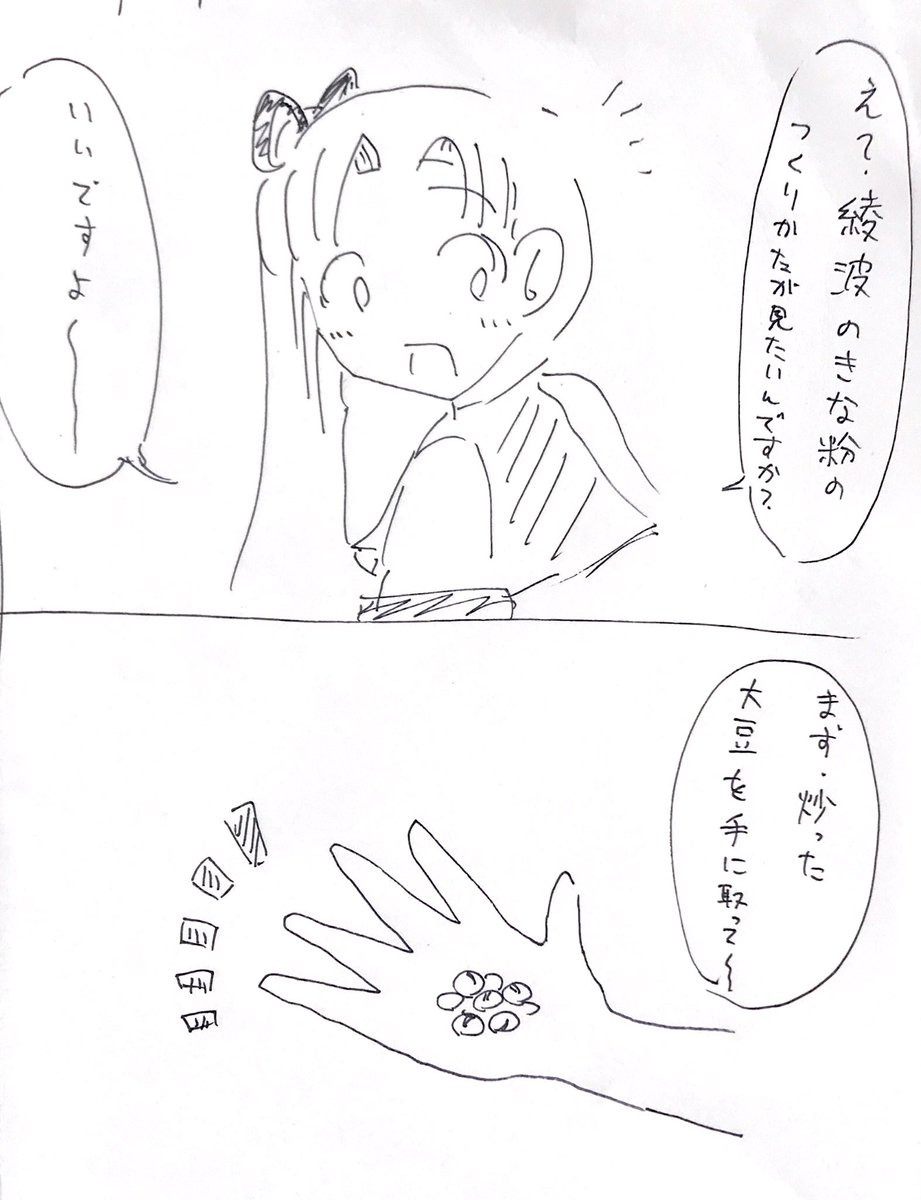 え?・綾波のきな粉の
つくりかたが見たいんですか?
いいですよ〜
まず・炒った
大豆を手に取って〜